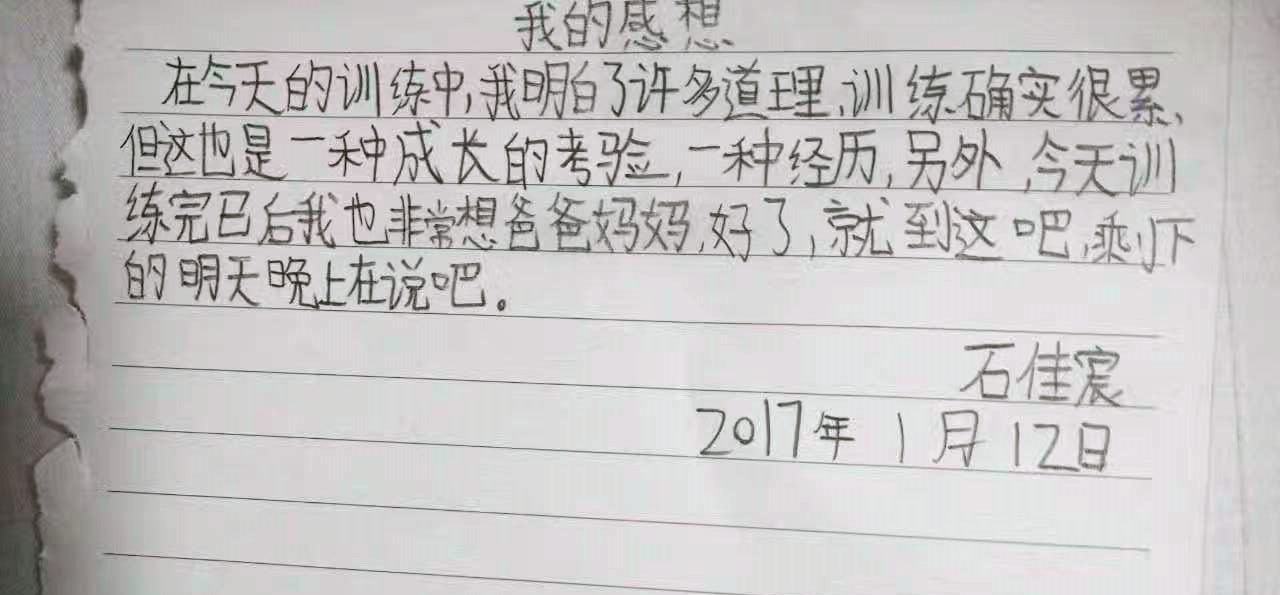 我的感想
在今天的训练中,我明白了许多道理,训练确实很累、
但这也是一种成长的考验,一种经历,另外,今天训
练完已后我也非常想爸爸妈妈,好了,就到这吧,乘下
的明天晚上在说吧。
石佳宸
2017年1月12日